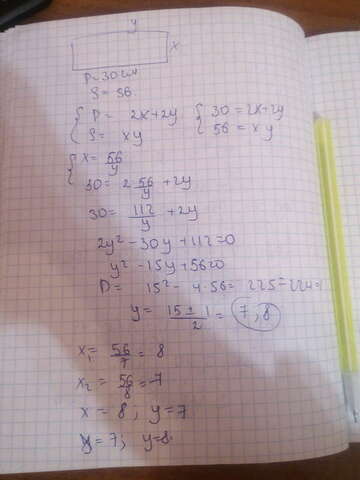 y
x
P=30см
S=56
{ P = 2x+2y { 30=2x+2y
{ S= xy { 56 = xy
{ x= 56/y
{ 30= 2 56/y +2y
30= 112/y +2y
2y² -30y+112=0
y² -15y+56=0
D= 15² - 4·56= 225-224=1
y= (15±1)/2 = 7,8
x₁= 56/7 = 8
x₂= 56/8 = 7
x = 8; y=7
x=7; y=8